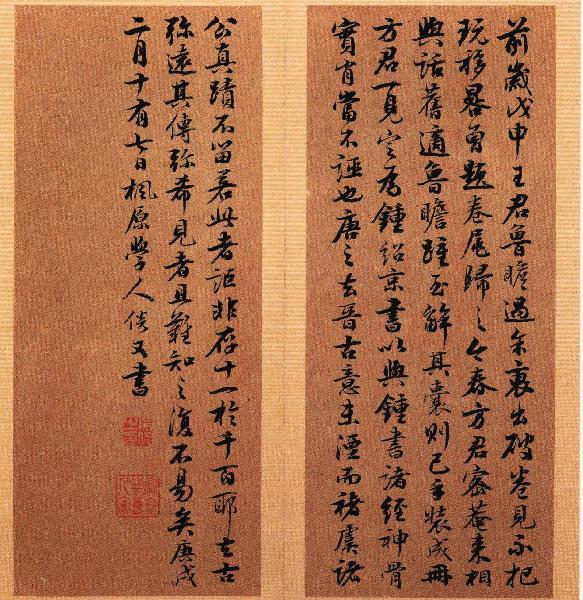 前歲戊申王君魯瞻過余裒出破卷見示把
玩移晷曾題卷尾歸之今春方君密菴来相
與話舊適魯瞻踵至解其囊則已手裝成冊
方君一見定為鍾紹京書以與鍾書諸經神骨
實肖當不誣也唐之去晋古意未湮而褚虞諸
公真蹟不留若此者詎非存十一於千百耶去古
弥遠其傳弥希見者且難知之復不易矣庚戌
二月十有七日楓原學人倓又書